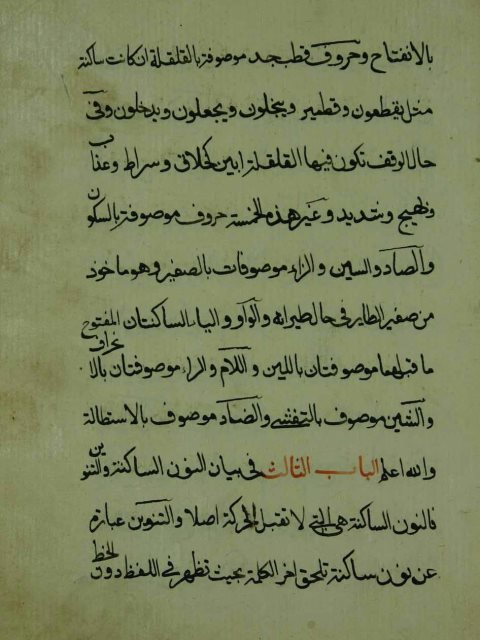 بالانفتاح وحروف قطب جد موصوفة بالقلقلة ان كانت ساكنة
مثل يقطعون وقطمير ويبخلون ويجعلون ويدخلون وفي
حال الوقف تكون فيها القلقلة ابين كخلاق وسراط وعذاب
وبهيج وشديد وغير هذه الخمسة حروف موصوفة بالسكون
والصاد والسين والزاء موصوفات بالصفير وهو ماخوذ
من صفير الطاير في حال طيرانه والواو والياء الساكنتان المفتوح
ما قبلهما موصوفتان باللين واللام والراء موصوفتان بالانحراف
والشين موصوف بالتفشي والضاد موصوف بالاستطالة
والله اعلم الباب الثالث في بيان النون الساكنة والتنوين
فالنون الساكنة هي التي لا تقبل الحركة اصلا والتنوين عبارة
عن نون ساكنة تلحق اخر الكلمة بحيث تظهر في اللفظ دون الخط